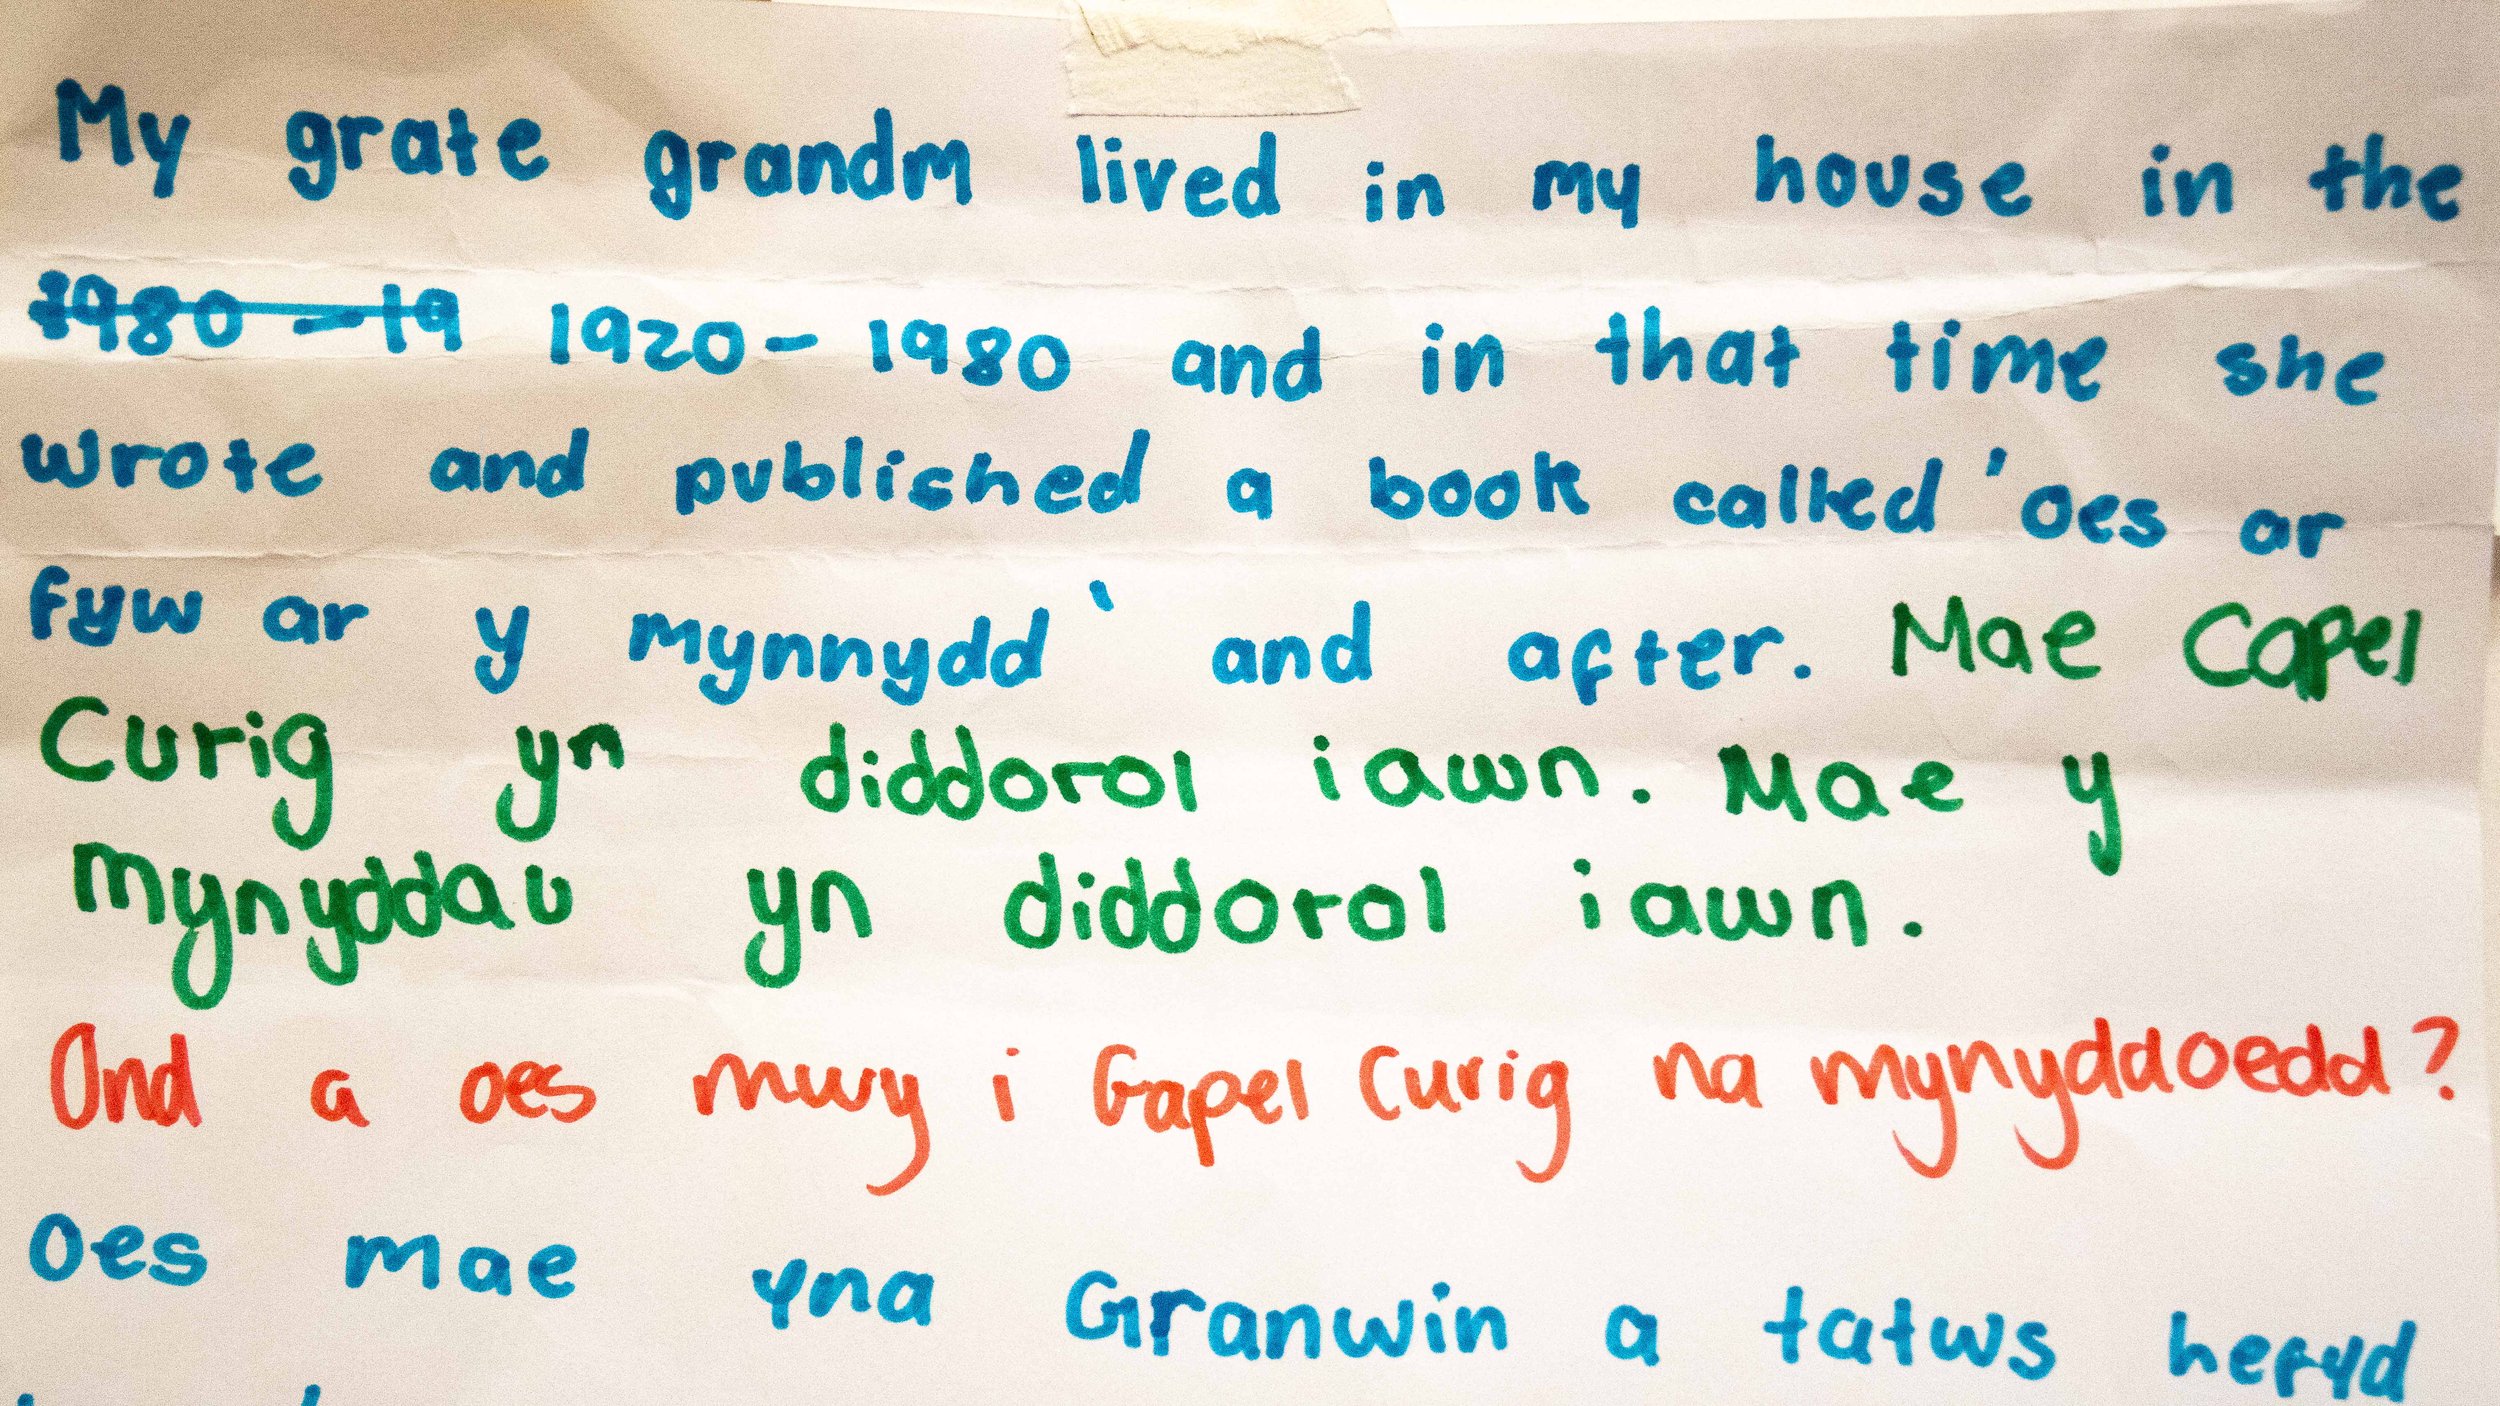 My grate grandm lived in my house in the
1980 - 19 1920 - 1980 and in that time she
wrote and published a book called 'oes ar
fyw ar y mynnydd' and after. Mae Capel
Curig yn diddorol iawn. Mae y
mynyddau yn diddorol iawn.
Ond a oes mwy i Gapel Curig na mynyddoedd?
Oes mae yna Granwin a tatws hefyd